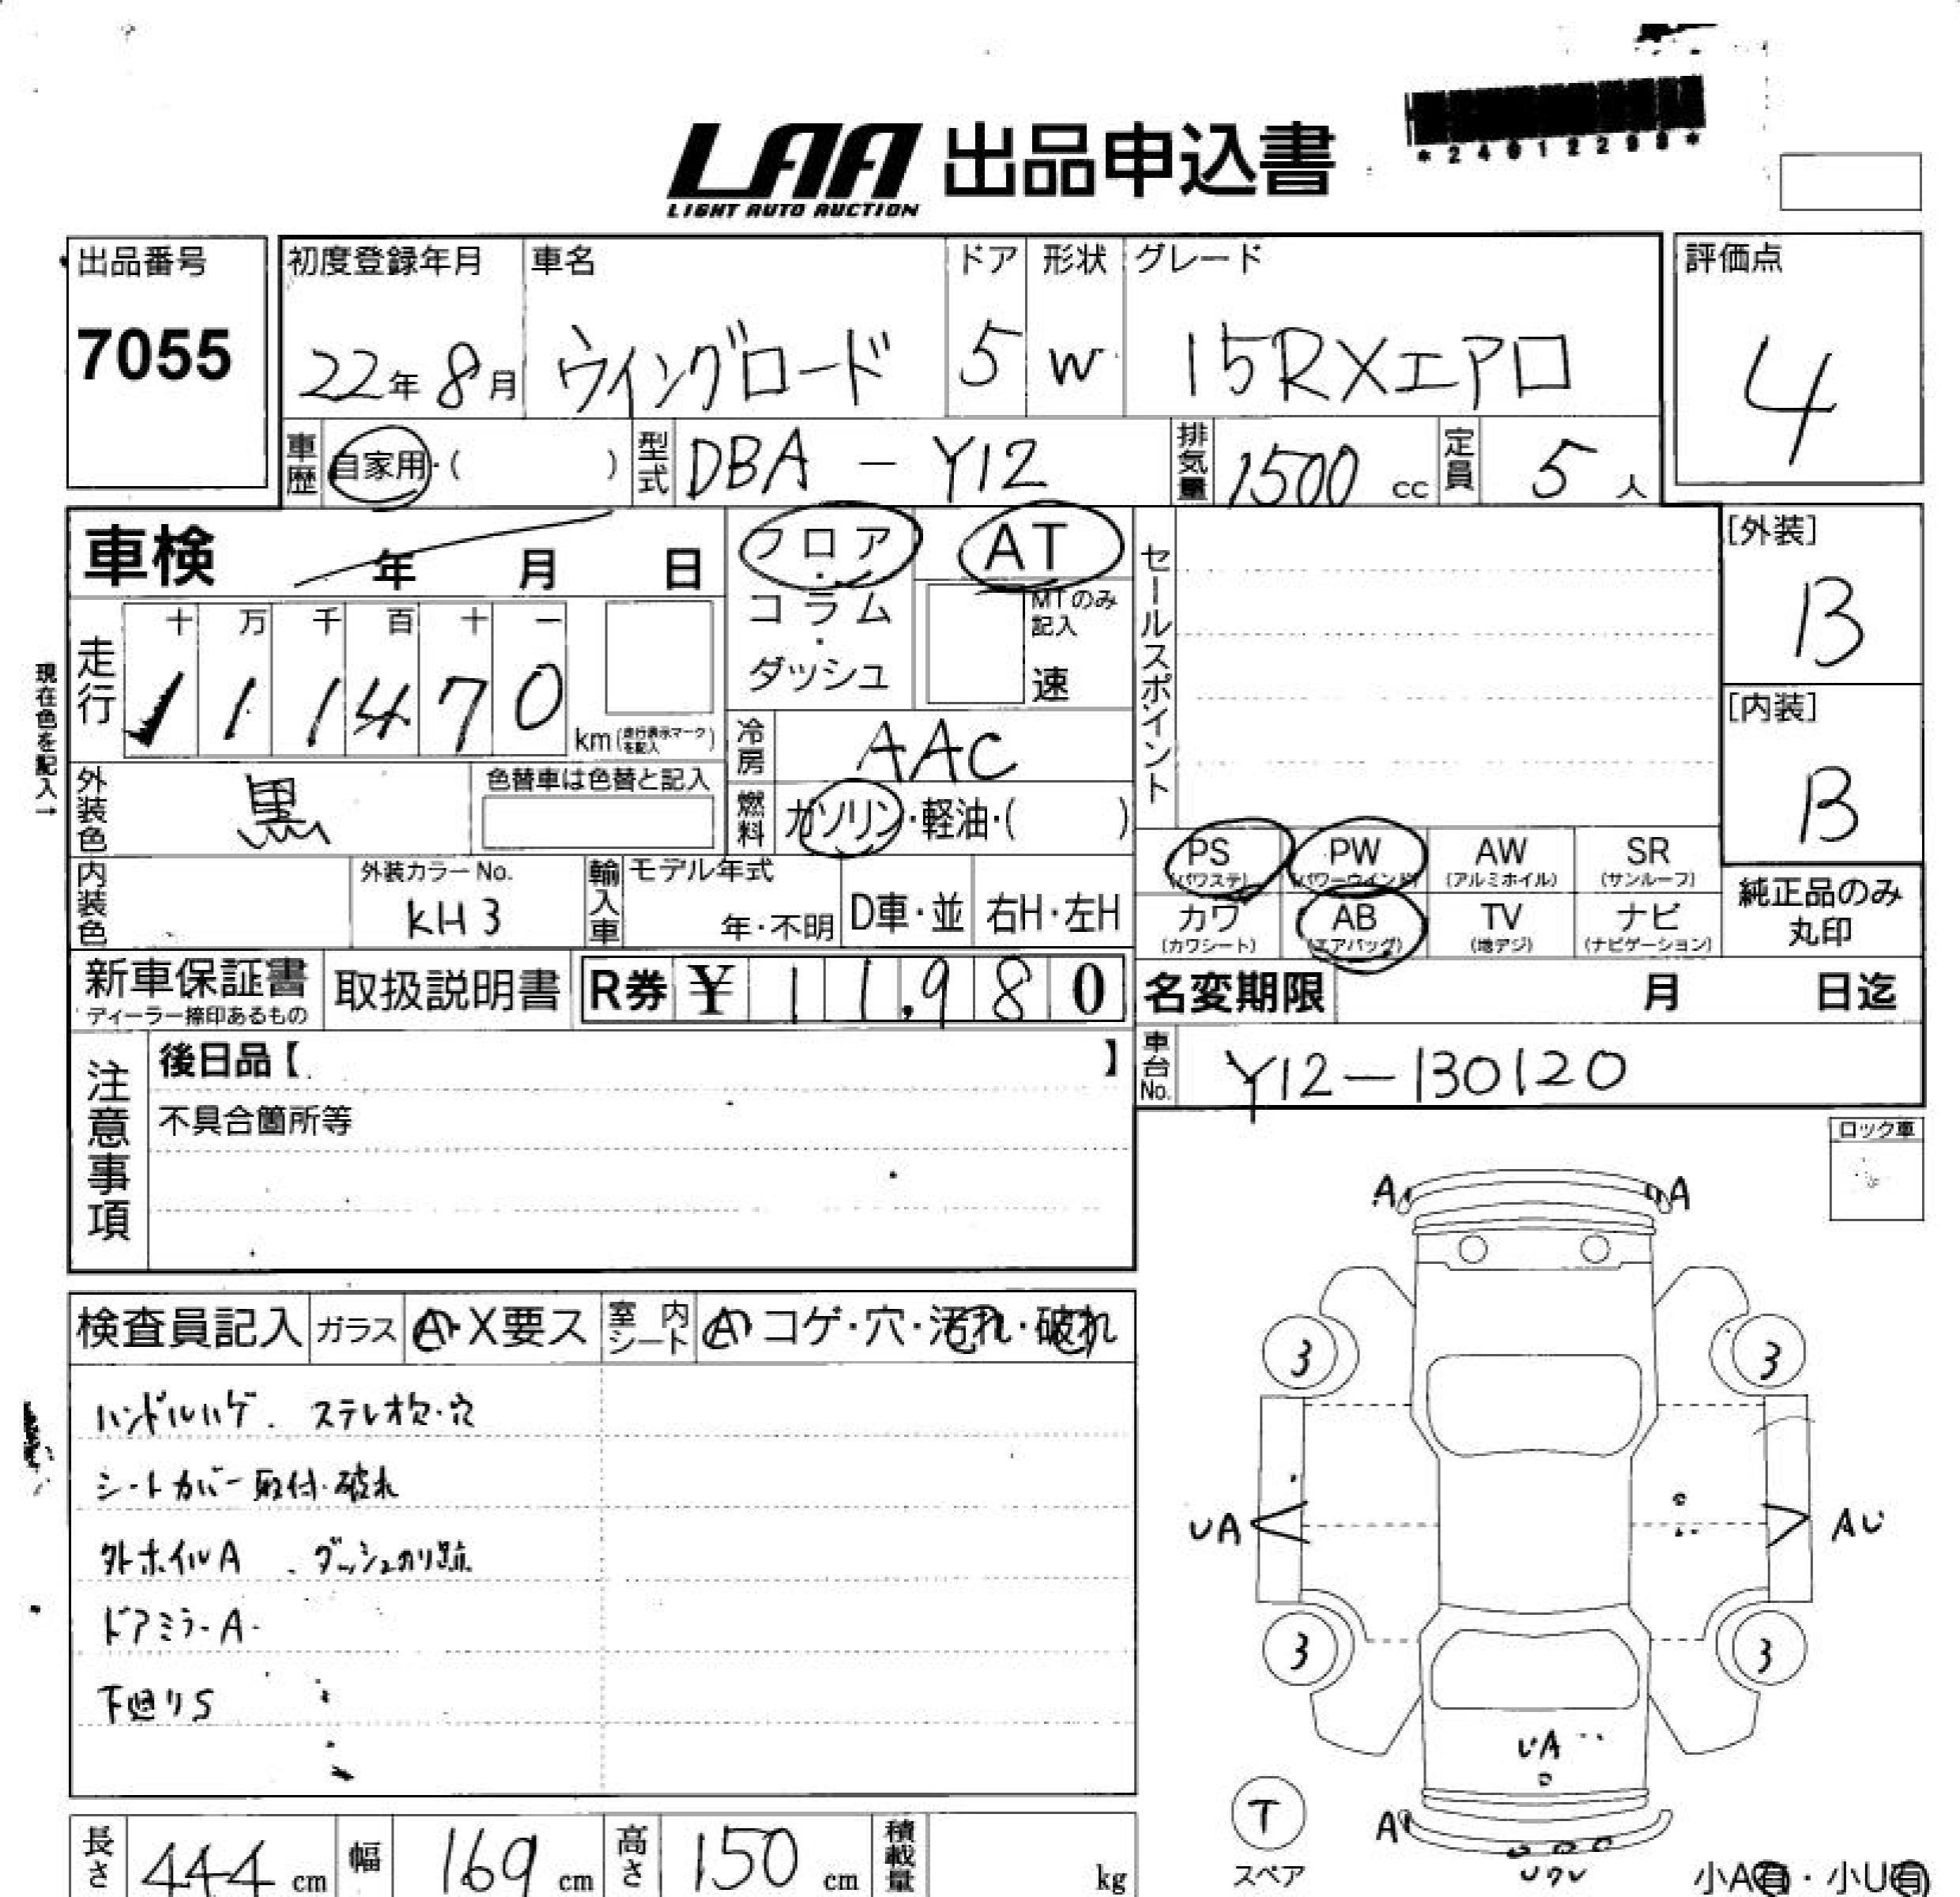 LAA 出品申込書
LIGHT AUTO AUCTION
*24012298*
出品番号 初度登録年月 車名 ドア 形状 グレード 評価点
7055 22年8月 ウイングロード 5 W 15RXエアロ 4
車歴 自家用・( ) 型式 DBA-Y12 排気量 1500 cc 定員 5 人
車検 年 月 日 フロア・コラム・ダッシュ AT セールスポイント [外装]
B
MTのみ記入
速
現在色を記入→
走行 十 万 千 百 十 一
1 1 1 4 7 0 km(走行表示マークを記入) [内装]
B
冷房 AAC
外装色 黒 色替車は色替と記入 燃料 ガソリン・軽油・( )
PS PW AW SR
(パワステ) (パワーウインド) (アルミホイル) (サンルーフ)
内装色 外装カラーNo. 輸入車 モデル年式 純正品のみ
KH3 年・不明 D車・並 右H・左H カワ AB TV ナビ 丸印
(カワシート) (エアバッグ) (地デジ) (ナビゲーション)
新車保証書 取扱説明書 R券 ¥ 1 1,9 8 0 名変期限 月 日迄
ディーラー捺印あるもの
注意事項 後日品【 】 車台No. Y12-130120
不具合箇所等 ロック車
A A
検査員記入 ガラス A・X要ス 室内シート A コゲ・穴・汚れ・破れ
3 3
ハンドルハゲ. ステレオ欠・穴
シートカバー取付・破れ
UA AU
外ホイルA . ダッシュのり跡
ドアミラーA
3 3
下廻りS
UA
T A
スペア
長さ 444 cm 幅 169 cm 高さ 150 cm 積載量 kg 小A有・小U有